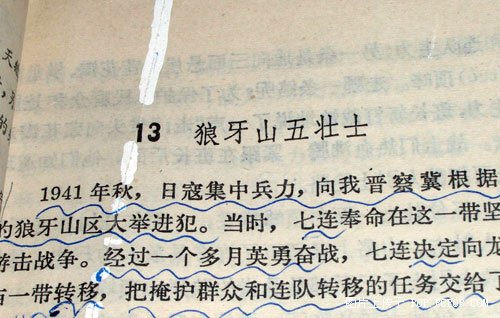 13 狼牙山五壮士
1941年秋，日寇集中兵力，向我晋察冀根据
的狼牙山区大举进犯。当时，七连奉命在这一带坚
游击战争。经过一个多月英勇奋战，七连决定向龙
一带转移，把掩护群众和连队转移的任务交给了